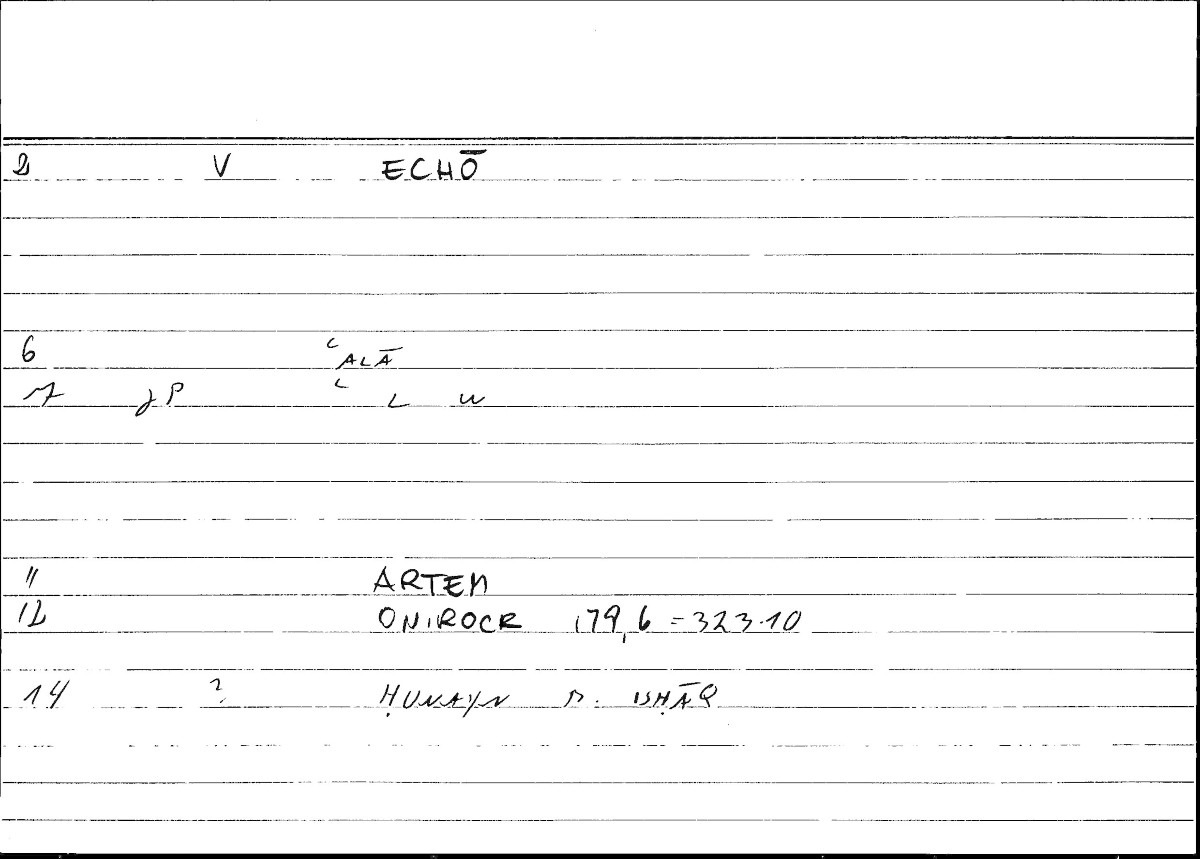 2 V ECHŌ
6 ʿALĀ
7 γP ʿ L W
11 ARTEM
12 ONIROCR 179,6 = 323.10
14 ? ḤUNAYN B. ISḤĀQ